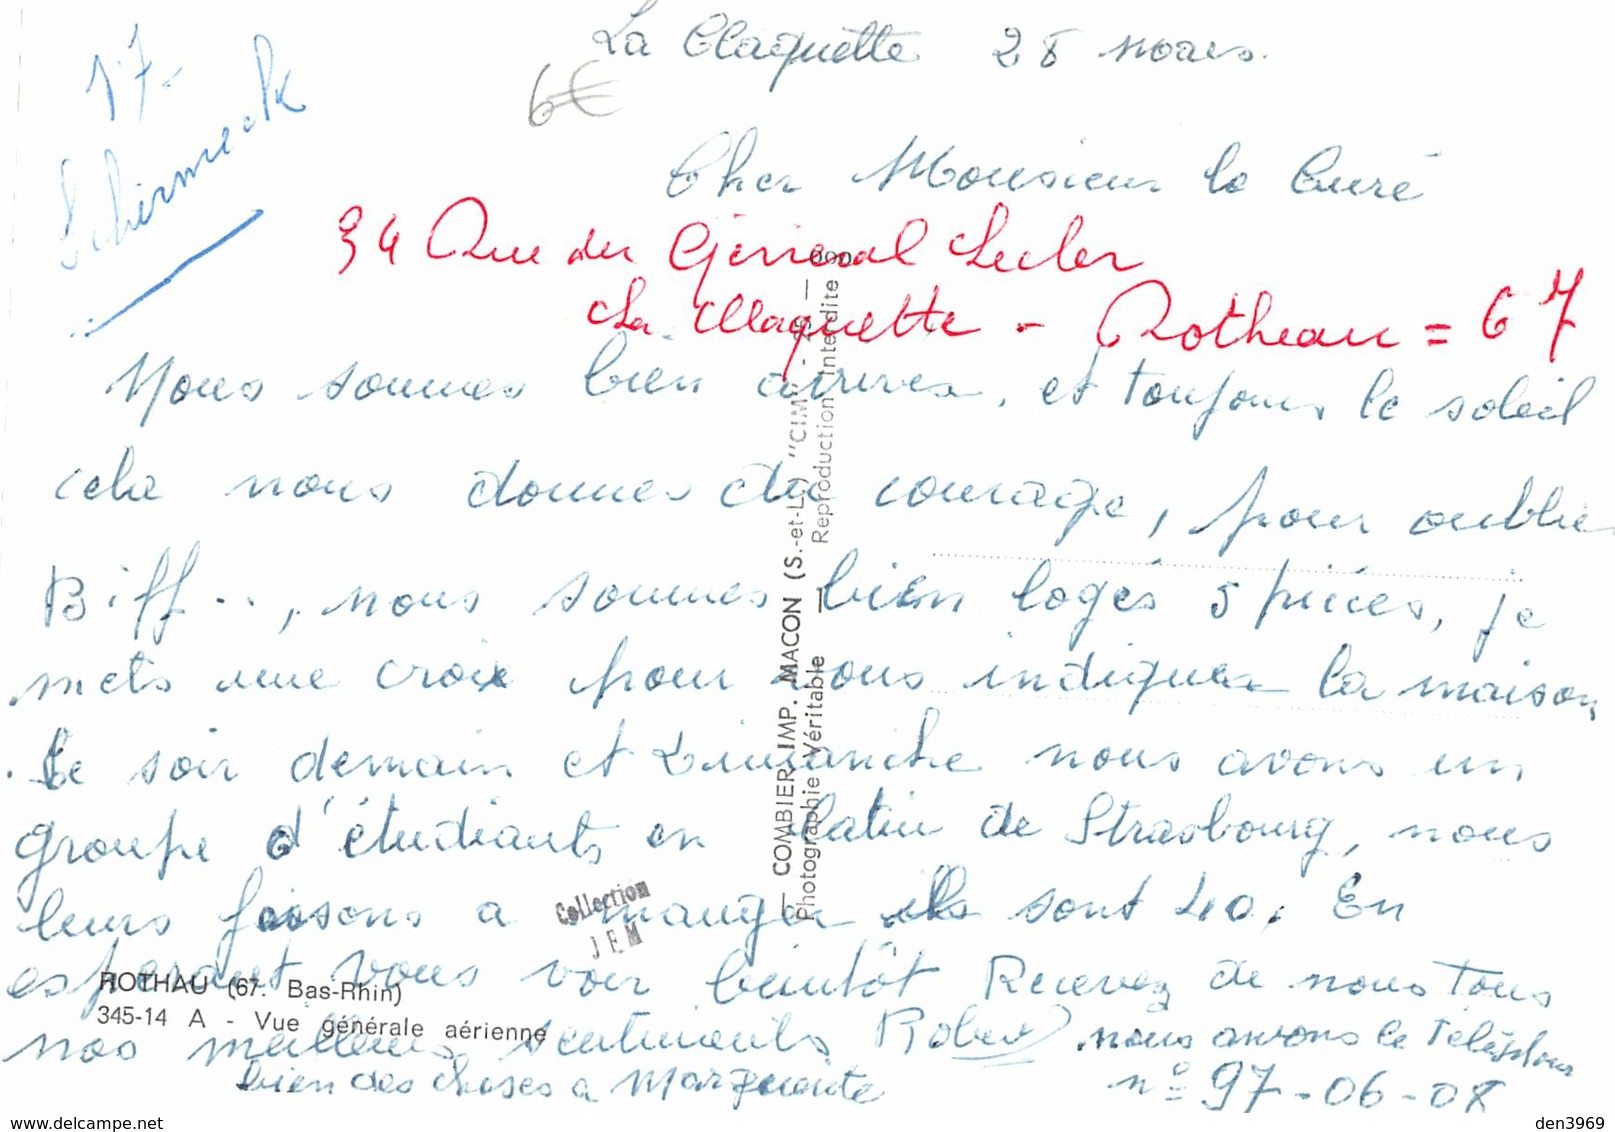 La Claquette 28 Mars.
17-
Schirmeck
6€
Cher Monsieur le Curé
34 Rue du Général Lecler
La Claquette - Rotheau = 67
Nous sommes bien arrives, et toujours le soleil
cela nous donnes du courage, pour oublier
Biff .., nous sommes bien logés 5 pièces, je
mets une croix pour vous indiquer la maison
. Le soir demain et Dimanche nous avons un
groupe d'étudiants en latin de Strasbourg, nous
leurs faisons a manger ils sont 40. En
esperant vous voir bientôt Recevez de nous tous
nos meilleurs sentiments Robert nous aurons le Téléphone
bien des choses a Marguerite n° = 97-06-08
COMBIER IMP. MACON (S.-et-L.) "CIM" -
Photographie Véritable — Reproduction Interdite
Collection
JEM
ROTHAU (67. Bas-Rhin)
345-14 A - Vue générale aérienne
www.delcampe.net
den3969